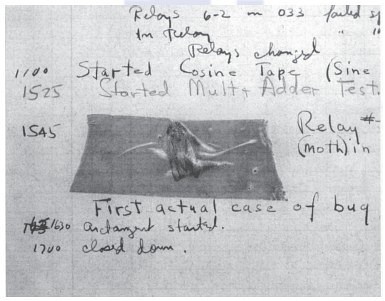 Relays 6-2 in 033 failed sp
In Relay
Relays changed
1100 Started Cosine Tape (Sine
1525 Started Mult+ Adder Test.
1545 Relay #
(moth) in
First actual case of bug
1630 andangent started.
1700 closed down.